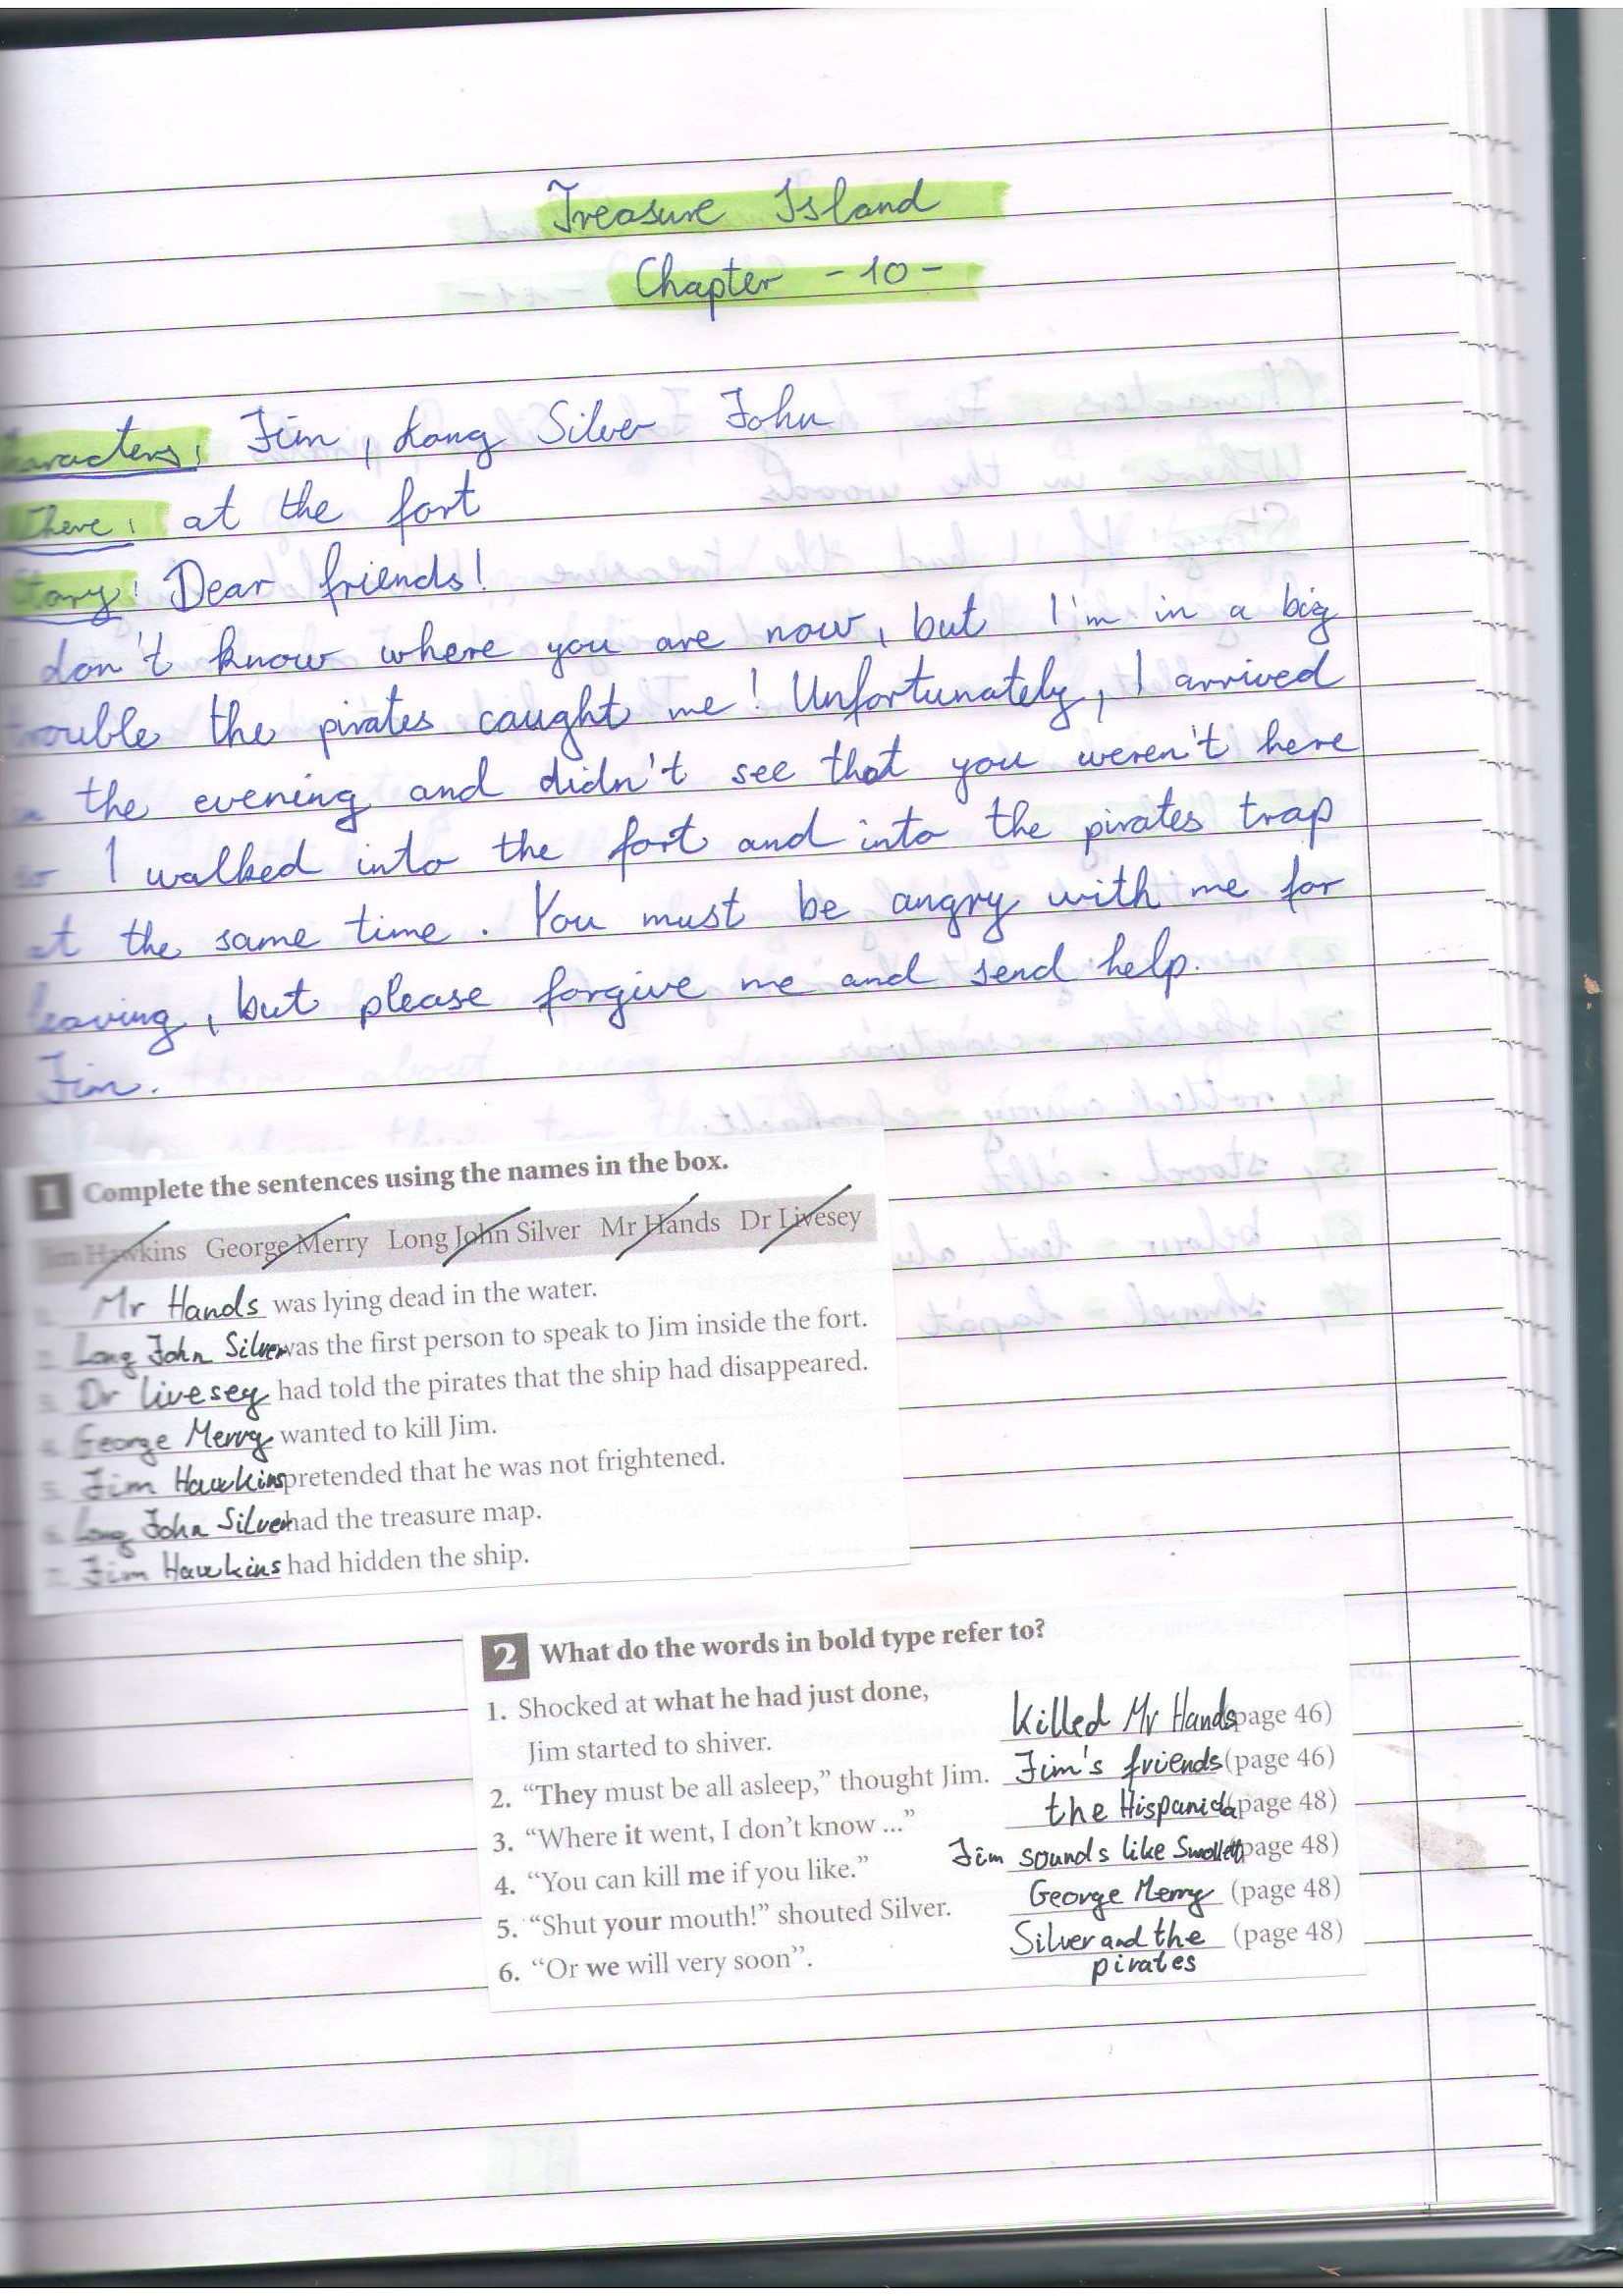 Treasure Island
Chapter -10-
Characters: Jim, Long Silver John
Where: at the fort
Story: Dear friends!
don't know where you are now, but I'm in a big
trouble the pirates caught me! Unfortunately, I arrived
in the evening and didn't see that you weren't here
so I walked into the fort and into the pirates trap
at the same time. You must be angry with me for
leaving, but please forgive me and send help.
Jim.
1 Complete the sentences using the names in the box.
Jim Hawkins George Merry Long John Silver Mr Hands Dr Livesey
1. Mr Hands was lying dead in the water.
2. Long John Silver was the first person to speak to Jim inside the fort.
3. Dr livesey had told the pirates that the ship had disappeared.
4. George Merry wanted to kill Jim.
5. Jim Hawkins pretended that he was not frightened.
6. Long John Silver had the treasure map.
7. Jim Hawkins had hidden the ship.
2 What do the words in bold type refer to?
1. Shocked at what he had just done,
Jim started to shiver. Killed Mr Hands page 46)
2. “They must be all asleep,” thought Jim. Jim's friends (page 46)
3. “Where it went, I don't know ...” the Hispaniola page 48)
4. “You can kill me if you like.” Jim sounds like Smollett page 48)
5. “Shut your mouth!” shouted Silver. George Merry (page 48)
6. “Or we will very soon”. Silver and the (page 48)
pirates